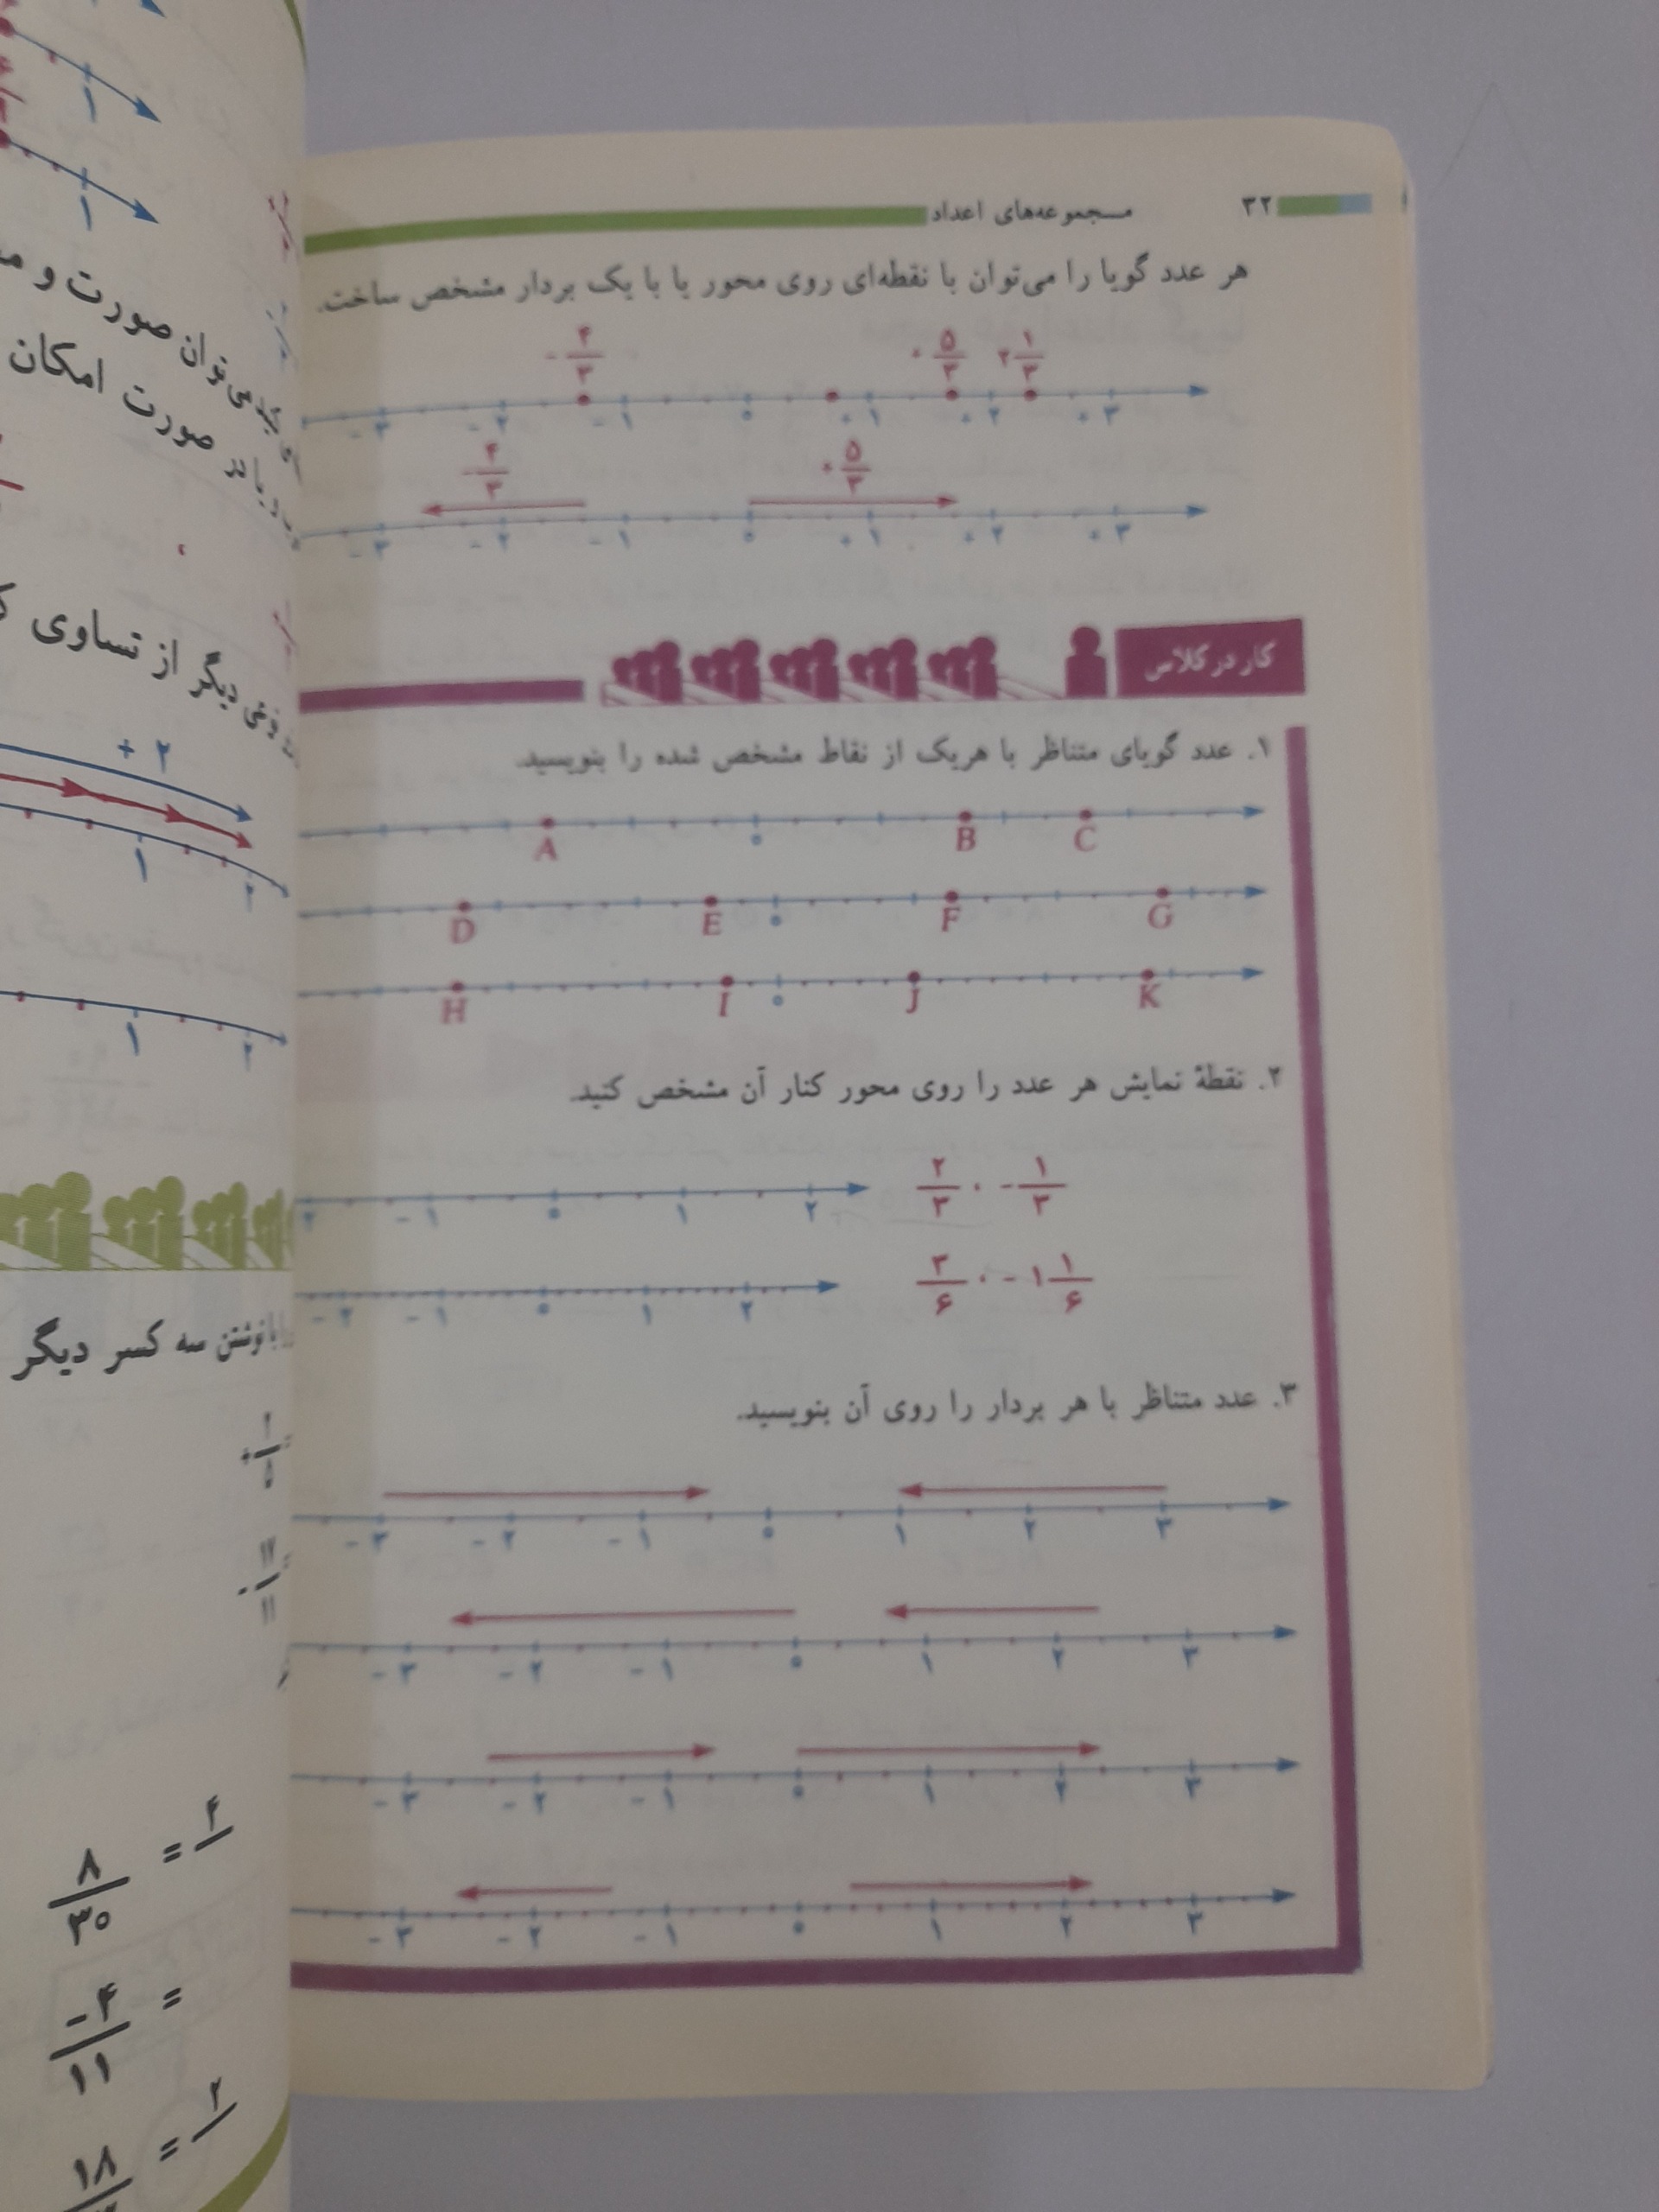 ۳۲ مجموعه‌های اعداد
هر عدد گویا را می‌توان با نقطه‌ای روی محور یا با یک بردار مشخص ساخت.
-۴/۳ +۵/۳ ۲ ۱/۳
-۳ -۲ -۱ ۰ +۱ +۲ +۳
-۴/۳ +۵/۳
-۳ -۲ -۱ ۰ +۱ +۲ +۳
کار در کلاس
۱. عدد گویای متناظر با هریک از نقاط مشخص شده را بنویسید.
A ۰ B C
D E ۰ F G
H I ۰ J K
۲. نقطهٔ نمایش هر عدد را روی محور کنار آن مشخص کنید.
۲/۳ ، -۱/۳
-۱ ۰ ۱ ۲
۳/۶ ، -۱ ۱/۶
-۲ -۱ ۰ ۱ ۲
۳. عدد متناظر با هر بردار را روی آن بنویسید.
-۳ -۲ -۱ ۰ ۱ ۲ ۳
-۳ -۲ -۱ ۰ ۱ ۲ ۳
-۳ -۲ -۱ ۰ ۱ ۲ ۳
-۳ -۲ -۱ ۰ ۱ ۲ ۳
۱
۱
می‌توان صورت و
صورت امکان
دیگر از تساوی
+۲
۱ ۲
۱ ۲
نوشتن سه کسر دیگر
۸/۳۰ =
-۴/۱۱ =
۱۸